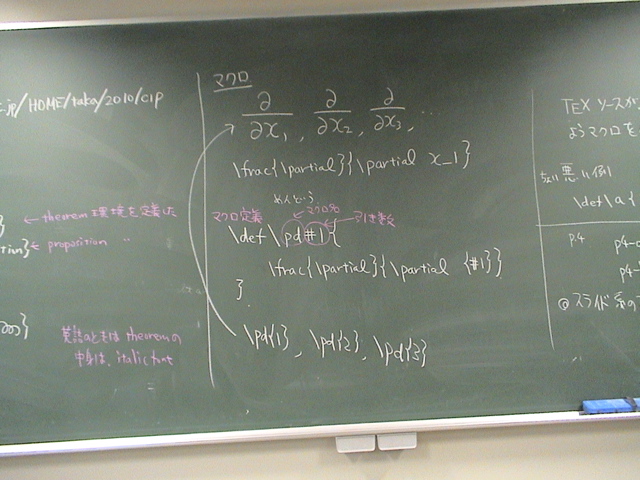 jp/HOME/taka/2010/CIP
} ← theorem 環境を定義した
tion} ← proposition 〃
英語のときは theoremの
中身は, italic font
マクロ
∂/∂x₁, ∂/∂x₂, ∂/∂x₃, ...
\frac{\partial}{\partial x_1}
めんどう
マクロ定義 マクロ名 引き数
\def\pd#1{
\frac{\partial}{\partial {#1}}
}
\pd{1}, \pd{2}, \pd{3}
TEX ソースが
ようマクロを
悪い例
\def\a{
P.4 p4-
p4-
スライド系の